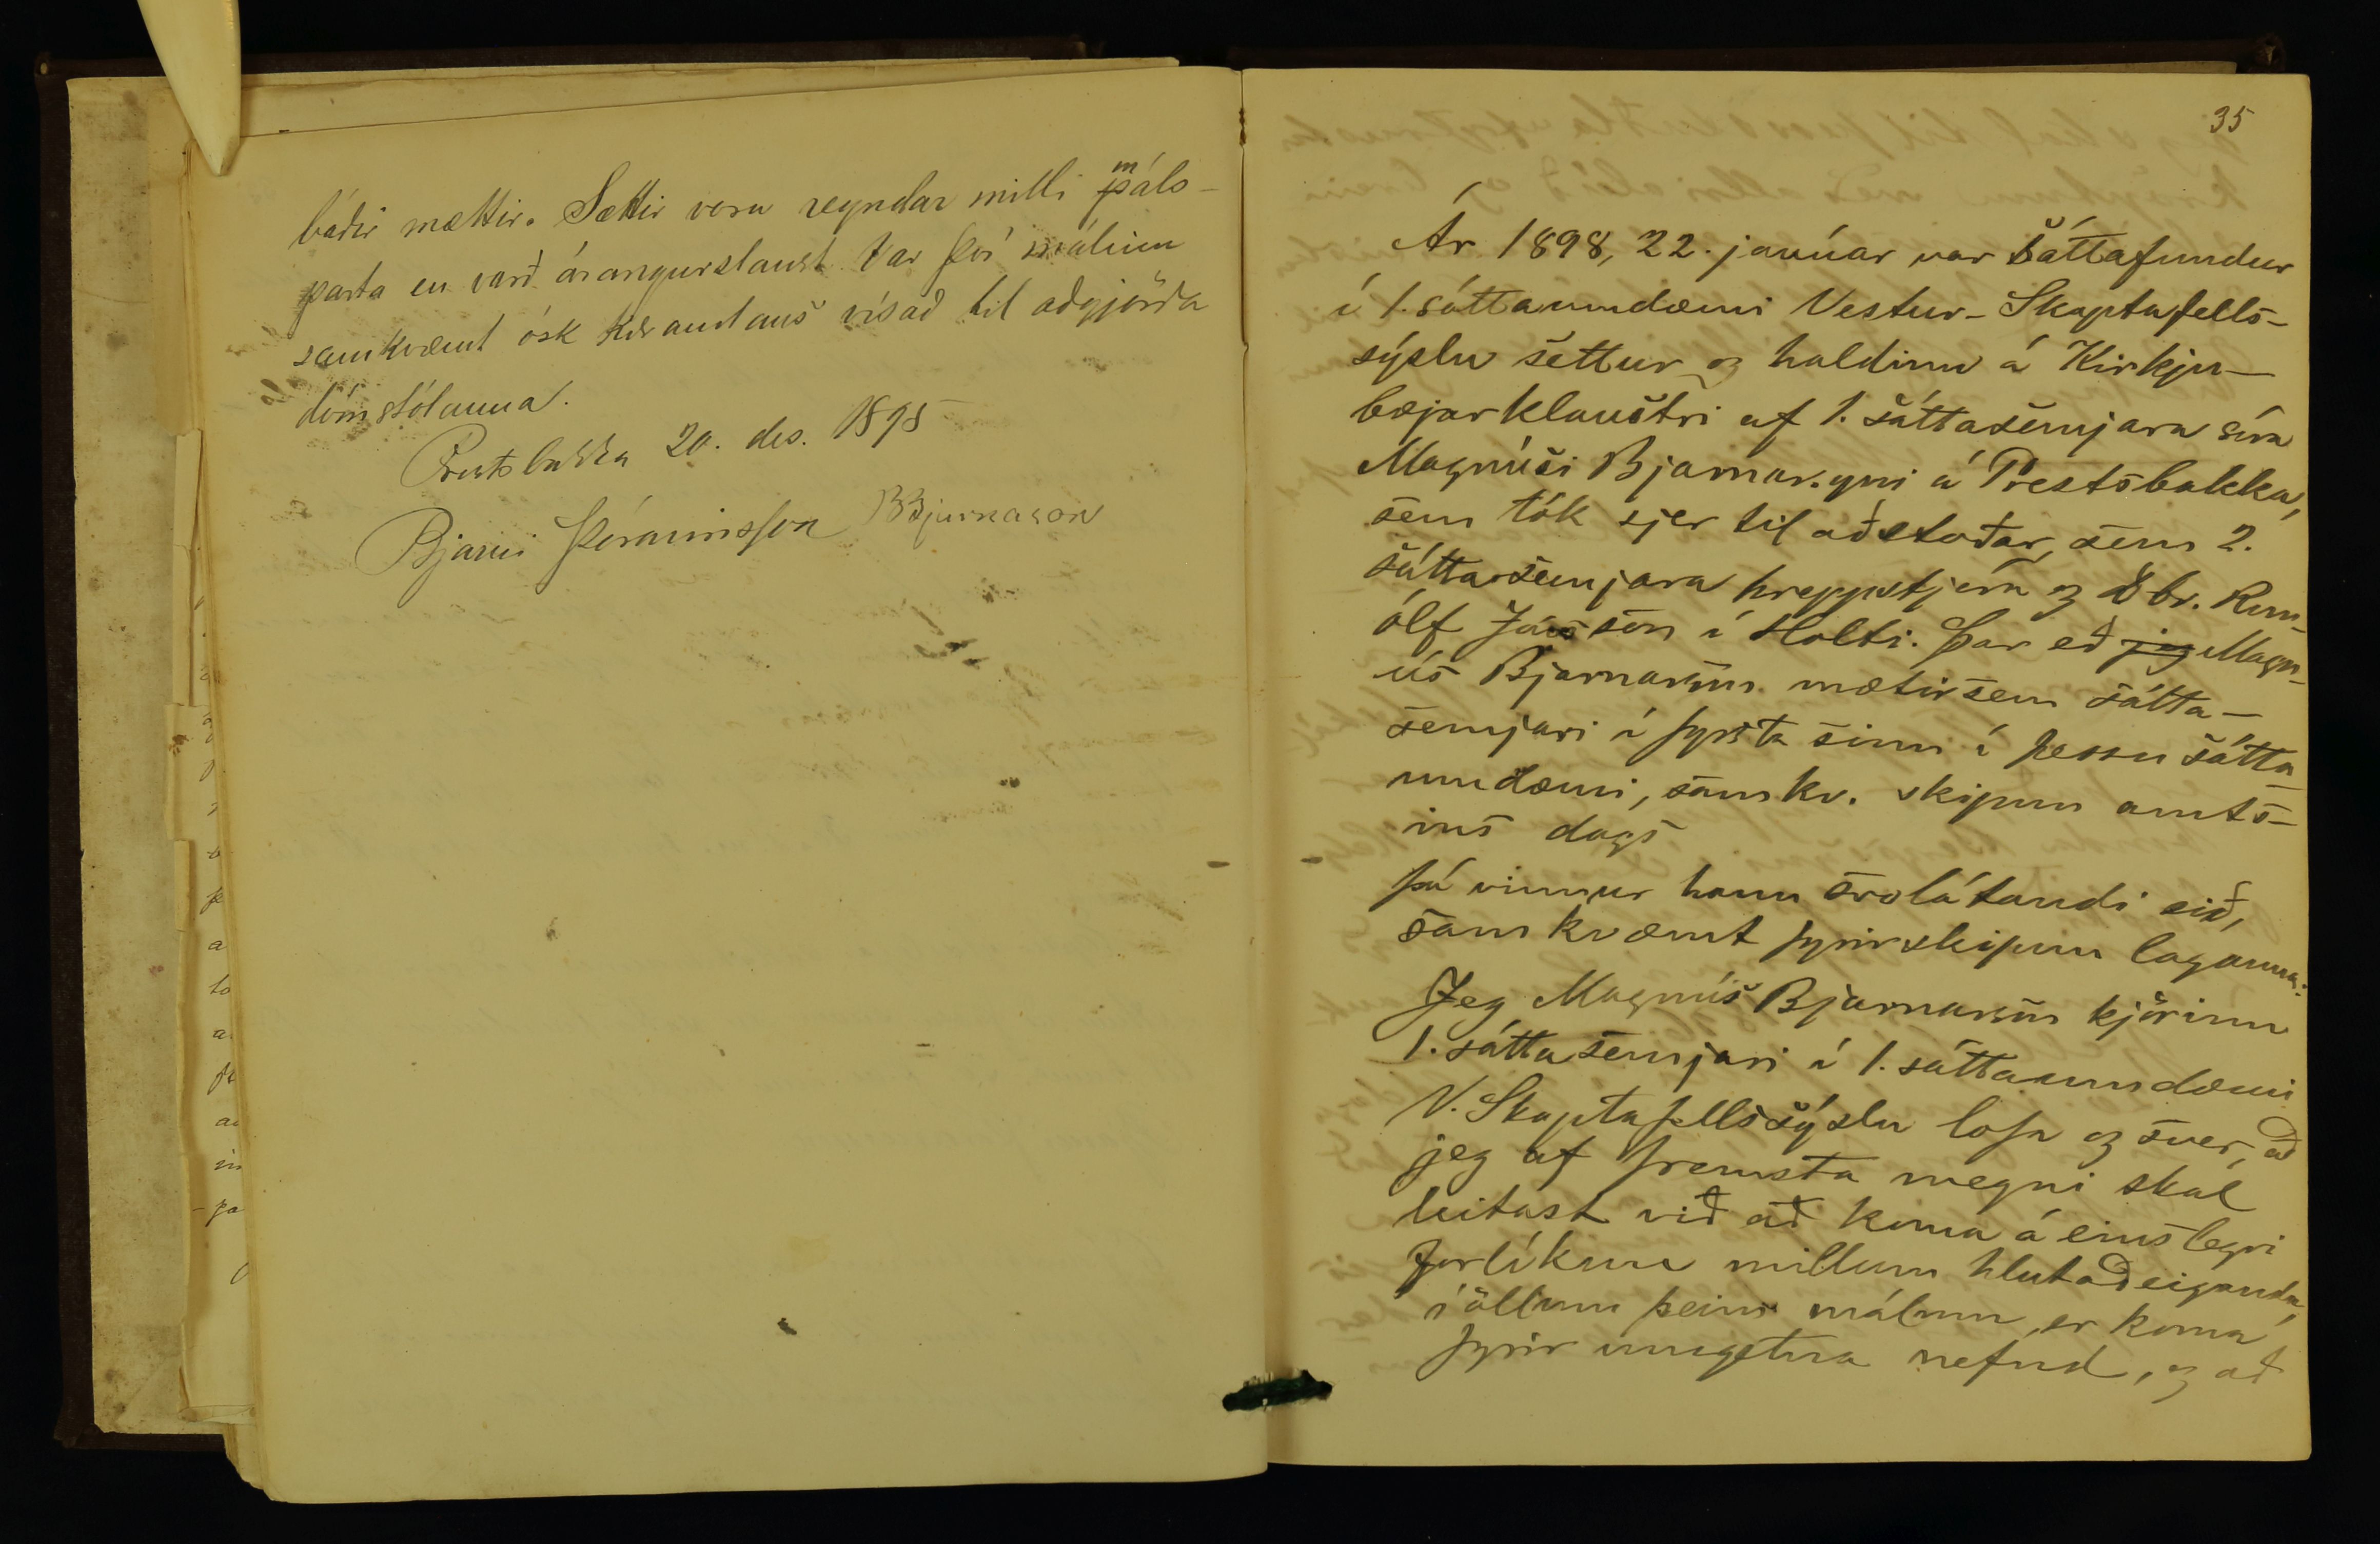 báðir mættir. Sættir voru reyndar milli máls-
parta en varð árangurslaust. Var því málinu
samkvæmt ósk kærandans vísað til aðgjörða
dómstólanna.
Prestsbakka 20. des. 1895
Bjarni Þórarinsson BBjarnason
35
Ár 1898, 22. janúar var sáttafundur
í 1. sáttaumdæmi Vestur-Skaptafells-
sýslu settur og haldinn á Kirkju-
bæjarklaustri af 1. sáttasemjara síra
Magnúsi Bjarnarsyni á Prestsbakka,
sem tók sjer til aðstoðar, sem 2.
sáttasemjara hreppstjóra og Dbr. Run-
ólf Jónsson í Holti. Þar eð jeg Magn-
ús Bjarnarson mætir sem sátta-
semjari í fyrsta sinn í þessu sátta-
umdæmi, samkv. skipun amts-
ins dags
þá vinnur hann svolátandi eið,
samkvæmt fyrirskipun laganna:
Jeg Magnús Bjarnarson kjörinn
1. sáttasemjari í 1. sáttaumdæmi
V. Skaptafellssýslu lofa og sver, að
jeg af fremsta megni skal
leitast við að koma á einslegri
forlíkun millum hlutaðeiganda,
í öllum þeim málum, er koma
fyrir umgetna nefnd, og að